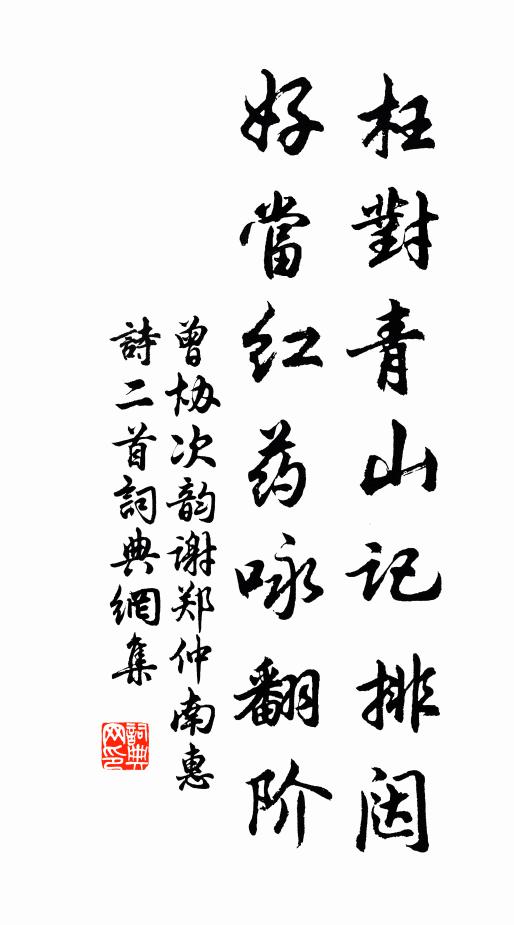 枉對青山記排闼
好當红药咏翻阶
曾协次韵谢郑仲南惠
詩二首詞典網集
詞典网印